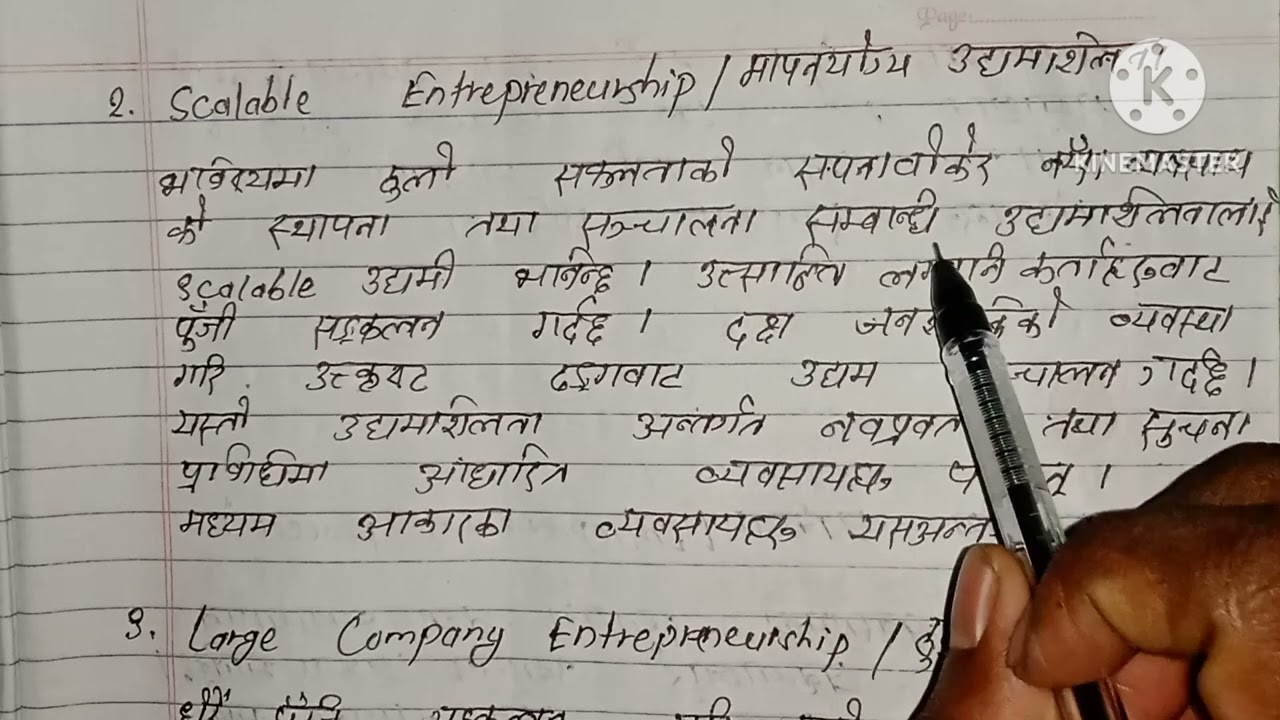 Page:
2. Scalable Entrepreneurship / मापनयोग्य उद्यमशिलता
K
KINEMASTER
भविष्यमा ठुलो सफलताको सपना बोकेर नयाँ व्यवसाय
को स्थापना तथा सञ्चालना सम्बान्धी उद्यमशिलतालाई
Scalable उद्यमी भनिन्छ । उत्साहित लगानी कर्ताहरुबाट
पुँजी सङ्कलन गर्दछ । दक्ष को व्यवस्था
गरि उत्कृष्ट ढङ्गबाट उद्यम गर्दछ ।
यस्तो उद्यमशिलता अन्तर्गत तथा सुचना
प्राविधिमा आधारित व्यवसायहरु
मध्यम आकारका व्यवसायहरु
3. Large Company Entrepreneurship /